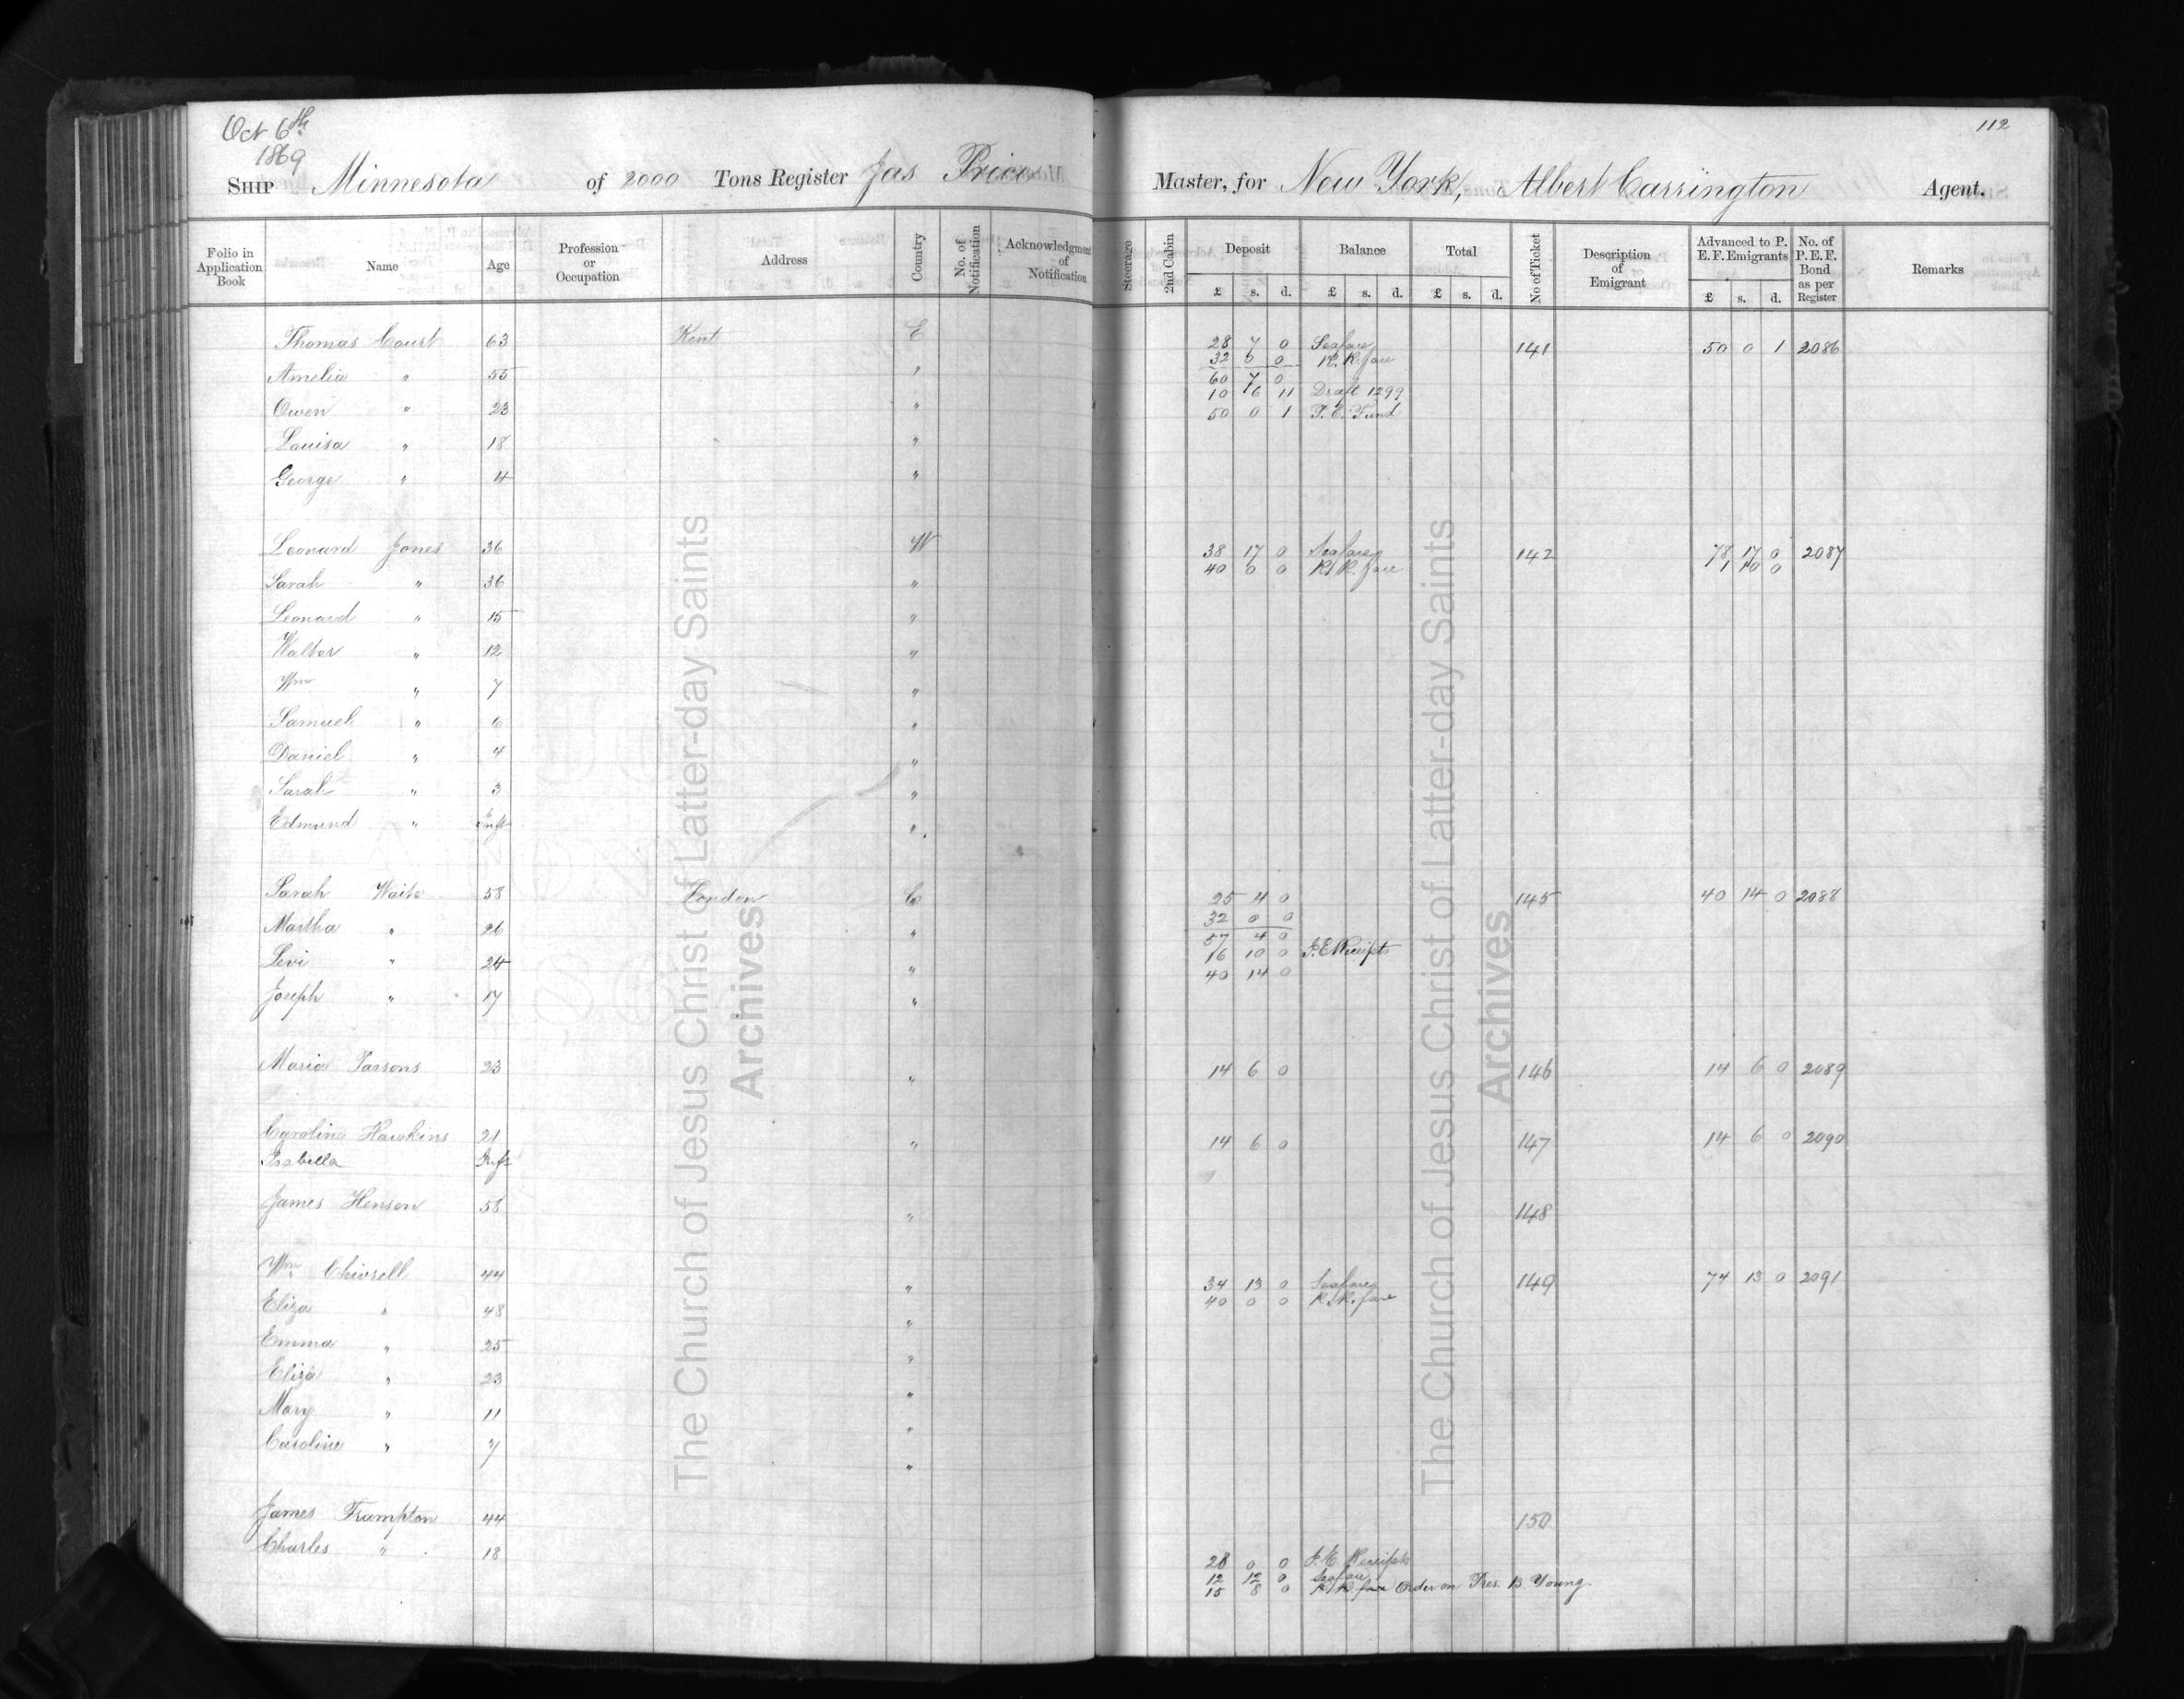 Oct 6th
1869
112
SHIP Minnesota of 2000 Tons Register Jas Price Master, for New York, Albert Carrington Agent.
Folio in Application Book Name Age Profession or Occupation Address Country No. of Notification Acknowledgment of Notification Steerage 2nd Cabin Deposit Balance Total No of Ticket Description of Emigrant Advanced to P. E. F. Emigrants No. of P. E. F. Bond as per Register Remarks
£ s. d. £ s. d. £ s. d. £ s. d.
Thomas Court 63 Kent E 28 7 0 Seafare 141 50 0 1 2086
32 0 0 R. R. fare
Amelia " 55 " 60 7 0
10 6 11 Draft 1299
Owen " 23 " 50 0 1 P. E. Fund
Louisa " 18 "
George " 4 "
Leonard Jones 36 W 38 17 0 Seafare 142 78 17 0 2087
40 0 0 R. R. fare 1 10 0
Sarah " 36 "
Leonard " 15 "
Walter " 12 "
Wm " 7 "
Samuel " 6 "
Daniel " 4 "
Sarah " 3 "
Edmund " Inft "
Sarah Waite 58 London E 25 4 0 145 40 14 0 2088
32 0 0
Martha " 26 " 57 4 0
16 10 0 P. E. Receipts
Levi " 24 " 40 14 0
Joseph " 17 "
Maria Parsons 23 " 14 6 0 146 14 6 0 2089
Caroline Hawkins 21 " 14 6 0 147 14 6 0 2090
Isabella Inft
James Henson 58 " 148
Wm Chiverell 44 " 34 13 0 Seafare 149 74 13 0 2091
40 0 0 R. R. fare
Eliza " 48 "
Emma " 25 "
Eliza " 23 "
Mary " 11 "
Caroline " 7 "
James Frampton 44 150
Charles " 18
28 0 0 P. E. Receipts
12 12 0 Seafare
15 8 0 R. R. fare Order on Pres. B. Young
The Church of Jesus Christ of Latter-day Saints
Archives
The Church of Jesus Christ of Latter-day Saints
Archives